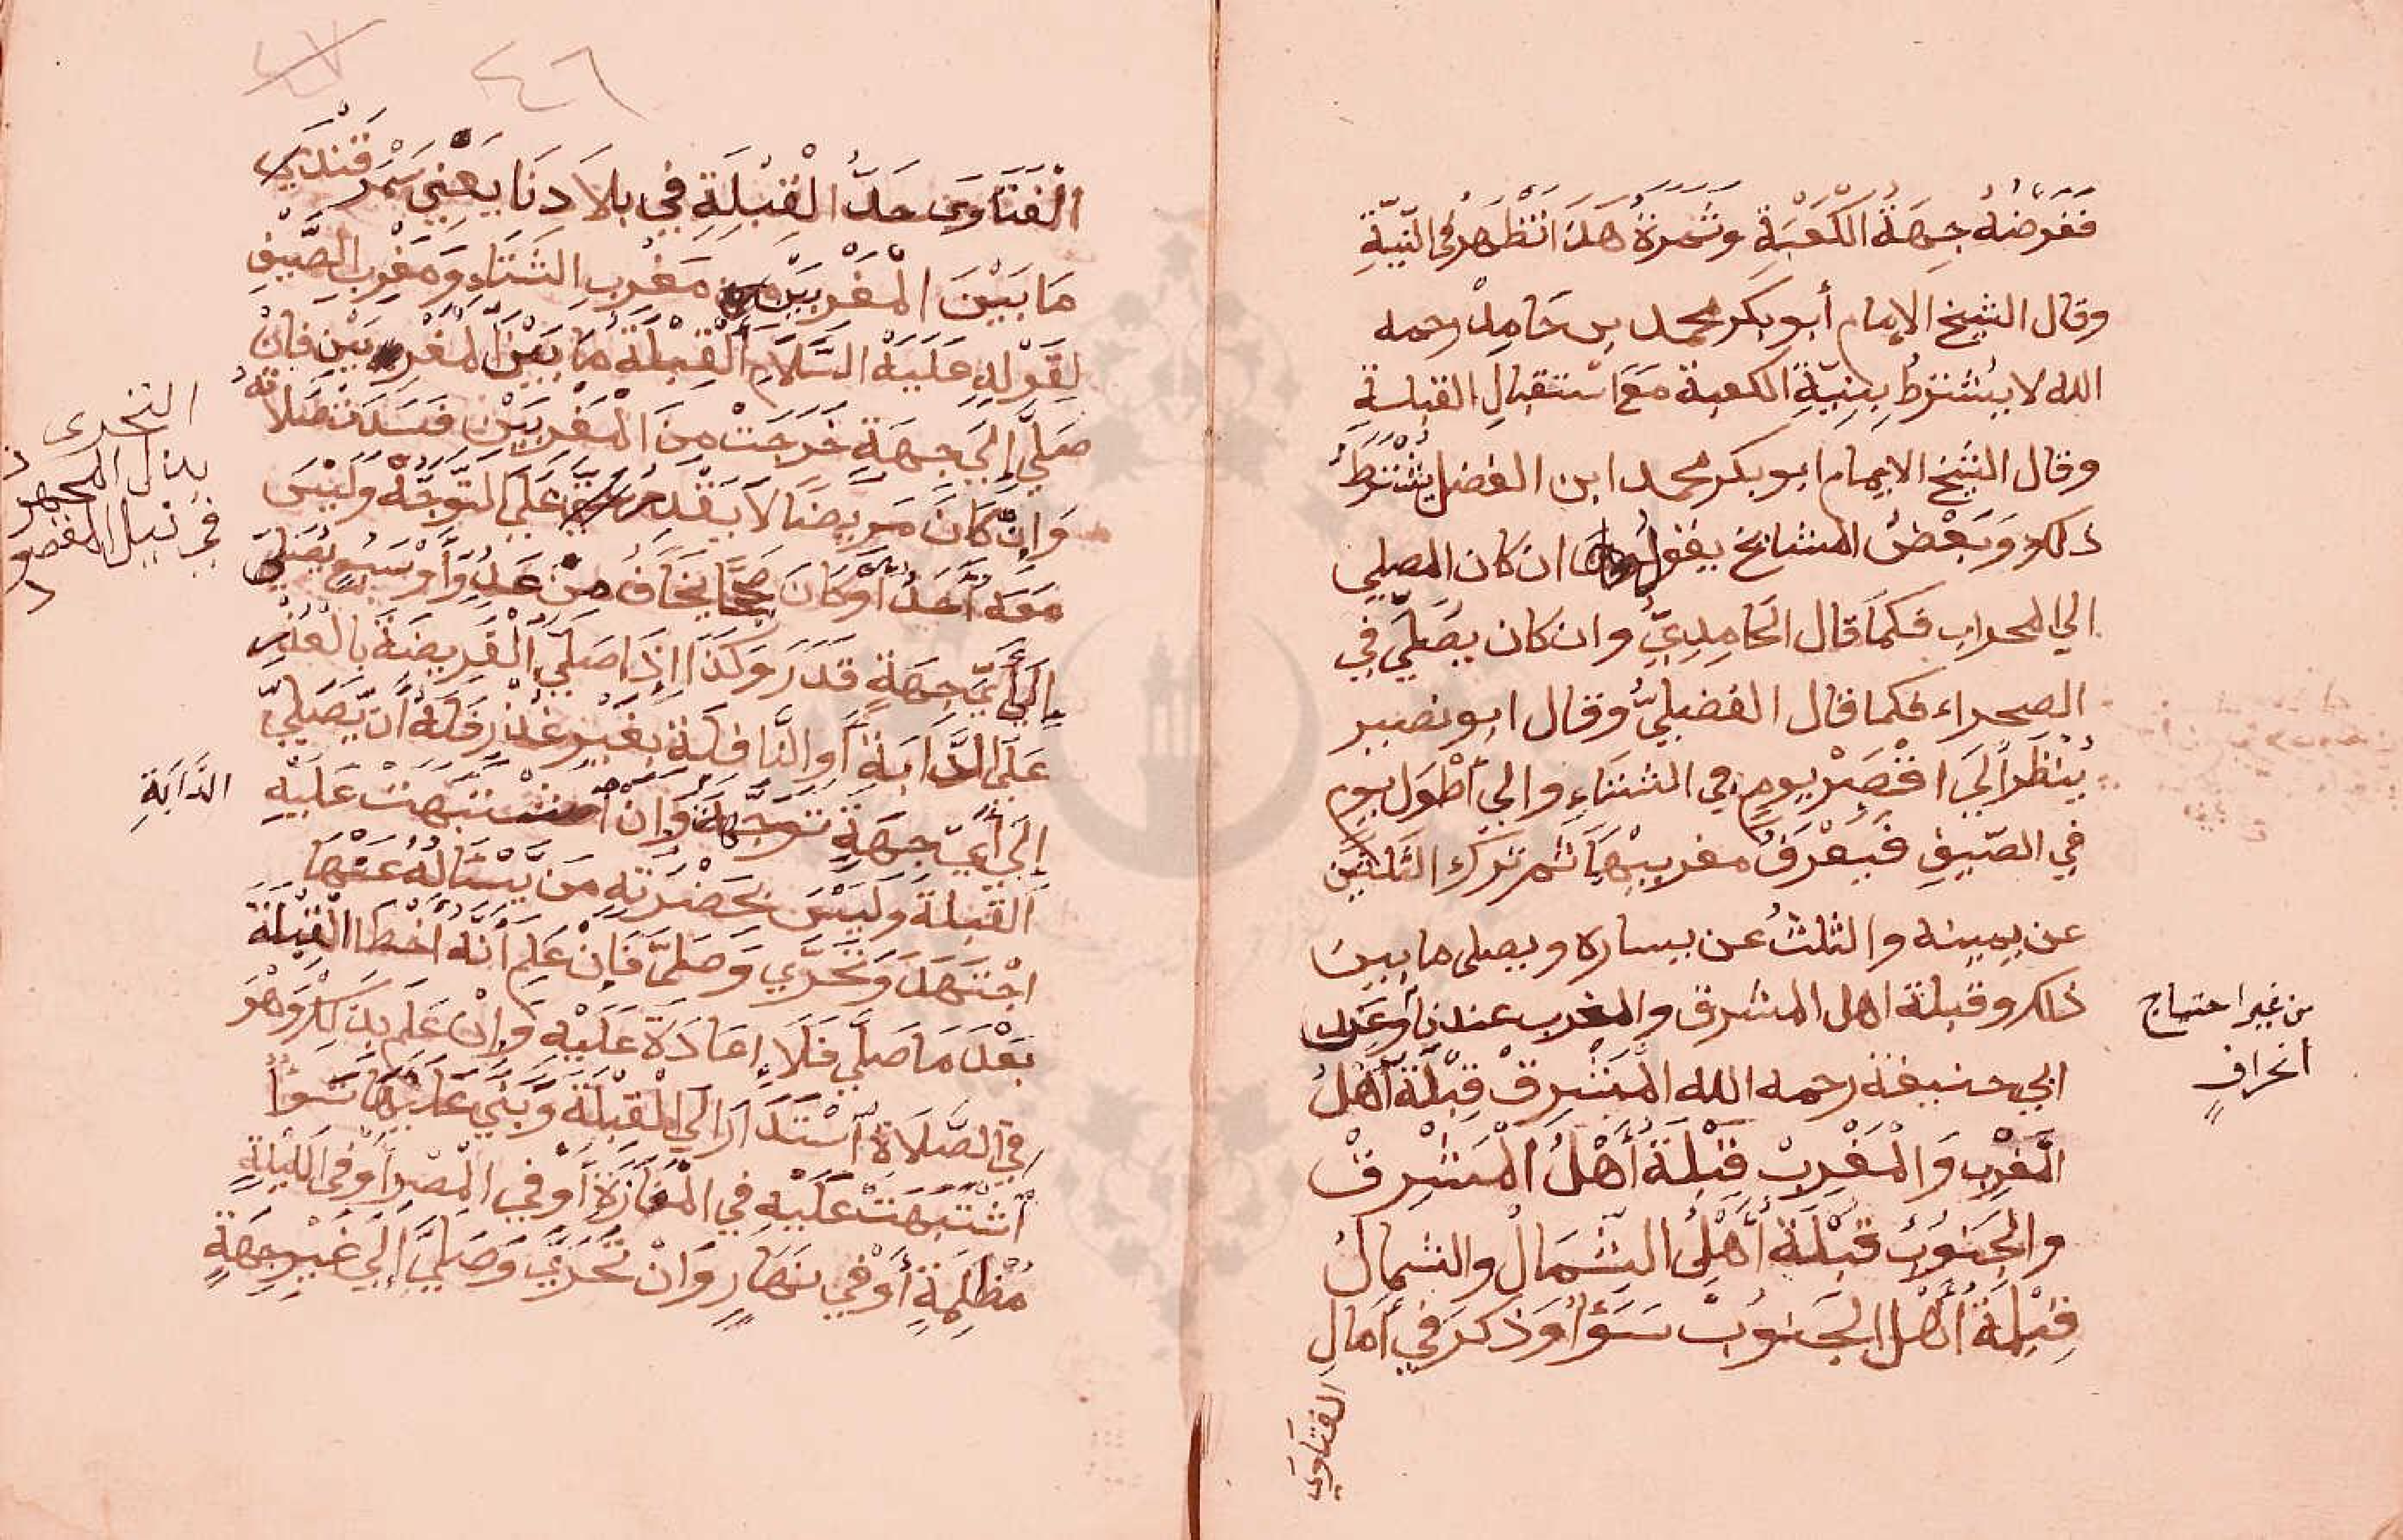 ففرضه جهة الكعبة وثمرة هذا تظهر في النية
وقال الشيخ الإمام أبو بكر محمد بن حامد رحمه
الله لا يشترط بنية الكعبة مع استقبال القبلة
وقال الشيخ الامام ابو بكر محمد ابن الفضل يشترط
ذلك وبعض المشايخ يقول ان كان المصلي
الي المحراب فكما قال الحامدي وان كان يصلي في
الصحراء فكما قال الفضلي وقال ابو نصير
ينظر الي اقصر يوم في الشتاء والي أطول يوم
في الصيف فيعرف مغربيها ثم ترك الثلثين
عن يمينه والثلث عن يساره ويصلى ما بين
ذلك وقبلة اهل المشرق والمغرب عندنا وعند
ابي حنيفة رحمه الله المشرق قبلة أهل
المغرب والمغرب قبلة أهل المشرق
والجنوب قبلة أهل الشمال والشمال
قبلة أهل الجنوب سوأ وذكر في أمال
الفتاوي
من غير احتياج
انحراف
٤٦
الفتاوي حد القبلة في بلادنا يعني سمرقندي
ما بين المغربين مغرب الشتاء ومغرب الصيف
لقوله عليه السلام القبلة ما بين المغربين فإن
صلي إلي جهة خرجت من المغربين فسدت صلاته
وان كان مريضا لا يقدر علي التوجه وليس
معه أحد أو كان صحيحا يخاف من عدو أو سبع يصلي
إلي أي جهة قدر وكذا إذا صلي الفريضة بالعذر
على الدابة أو النافلة بغير عذر فله أن يصلي
إلي أي جهة توجهة وإن اشتبهت عليه
القبلة وليس بحضرته من يسأله عنها
اجتهد وتحري وصلي فإن علم أنه اخطا القبلة
بعد ما صلي فلا إعادة عليه وإن علم بذلك وهو
في الصلاة استدار الي القبلة وبني عليها سوأ
اشتبهت عليه في المفازة أو في المصر أو في الليلة
مظلمة أو في نهار وان تحري وصلي إلي غير جهة
التحرى
بذل المجهود
في نيل المقصود
الدابة